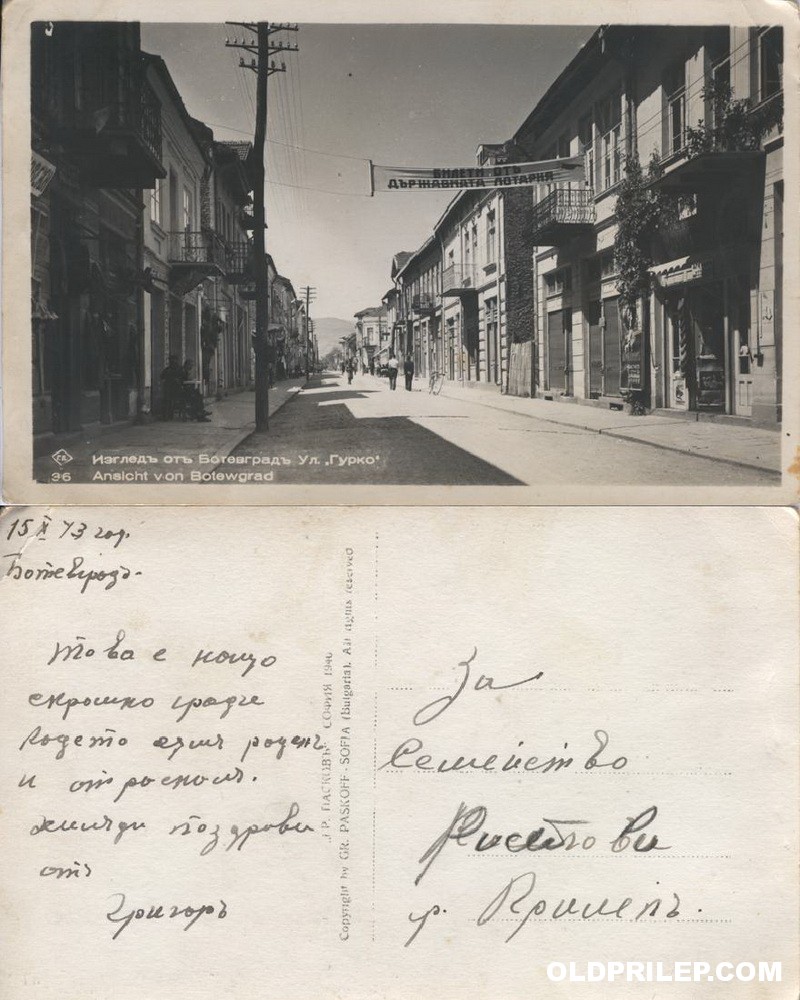 БИЛЕТИ ОТЪ
ДЪРЖАВНАТА ЛОТАРИЯ
Изгледъ отъ Ботевградъ Ул. „Гурко“
36 Ansicht von Botewgrad
15 X 43 год.
Ботевградъ.
това е нашо
скромно градче
кодето съмъ роденъ
и отраснал.
хиляди поздрави
отъ
Григоръ
ГР. ПАСКОВЪ СОФИЯ 1940
Copyright by GR. PASKOFF - SOFIA (Bulgaria). All rights reserved
За
Семейство
Ристови
гр. Прилепъ.
OLDPRILEP.COM